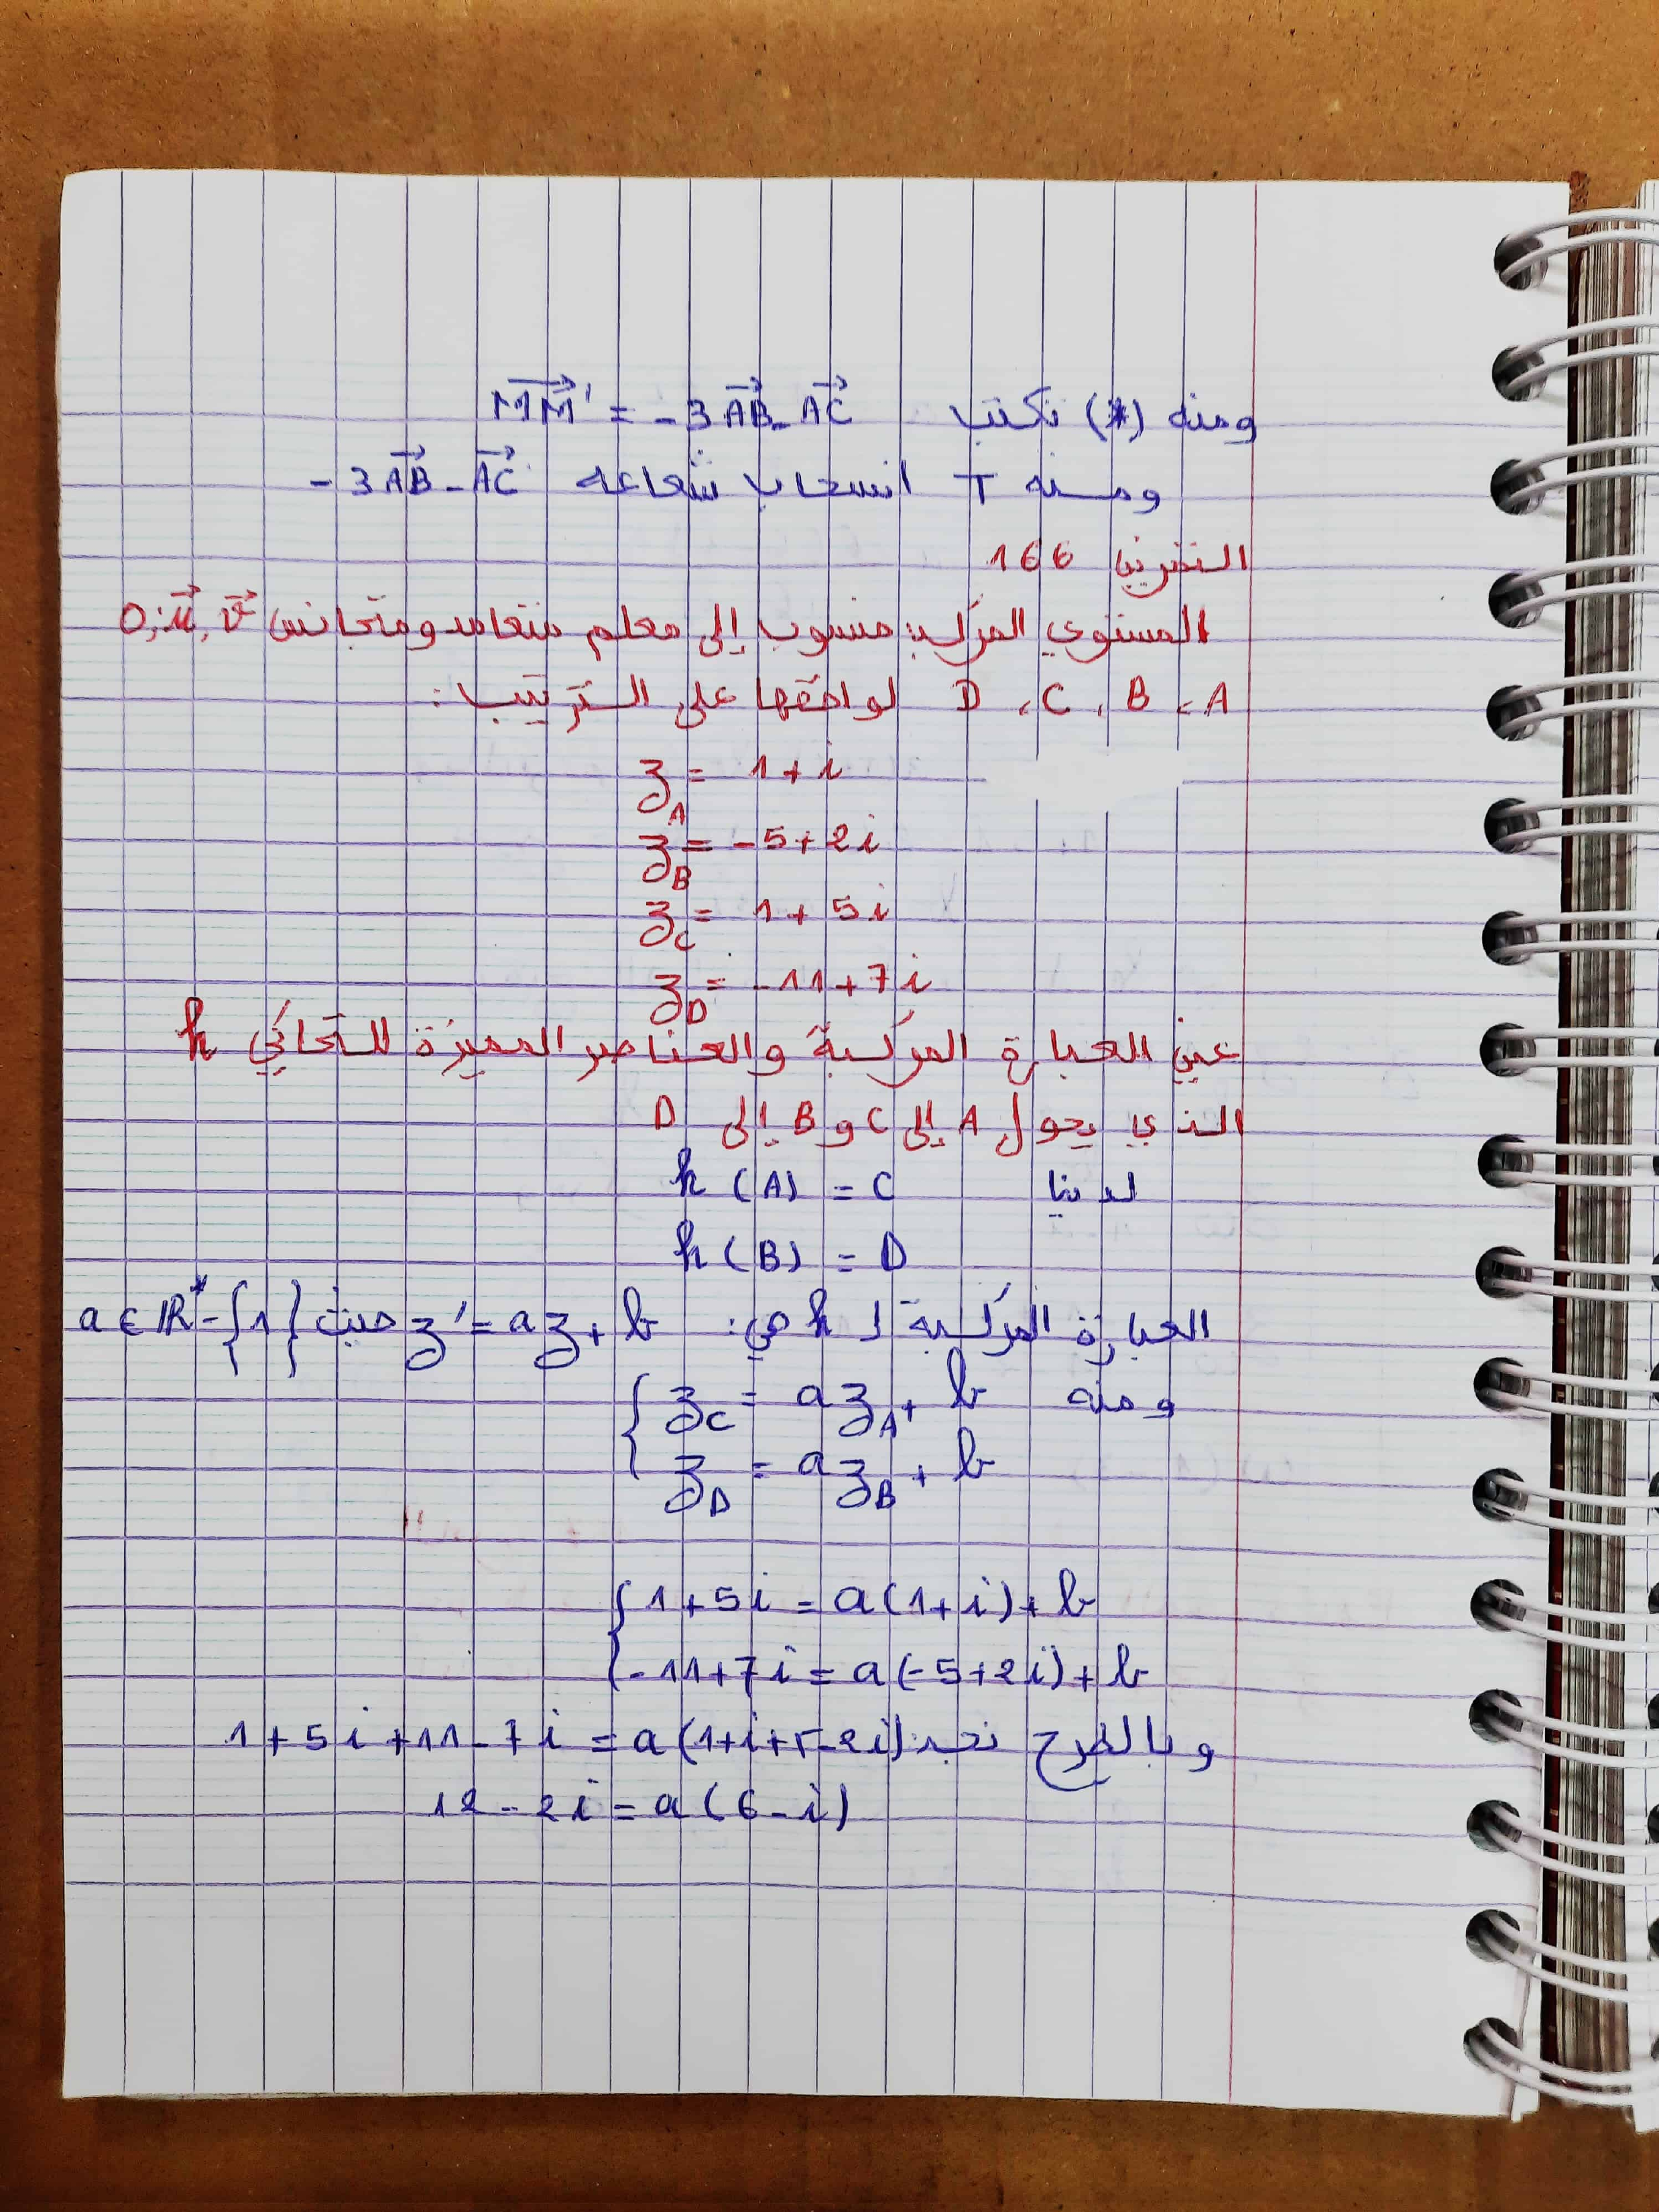 ومنه (*) تكتب MM' = -3AB - AC
ومنه T انسحاب شعاعه -3AB - AC
التمرين 166
المستوي المركب منسوب إلى معلم متعامد ومتجانس O; u, v
A، B، C، D لواحقها على الترتيب:
z_A = 1+i
z_B = -5+2i
z_C = 1+5i
z_D = -11+7i
عين العبارة المركبة والعناصر المميزة للتحاكي h
الذي يحول A إلى C و B إلى D
لدينا h(A) = C
h(B) = D
العبارة المركبة لـ h هي: z' = az+b حيث a ∈ ℝ* - {1}
ومنه { z_C = a z_A + b
z_D = a z_B + b
{ 1+5i = a(1+i)+b
-11+7i = a(-5+2i)+b
وبالطرح نجد: 1+5i+11-7i = a(1+i+5-2i)
12-2i = a(6-i)